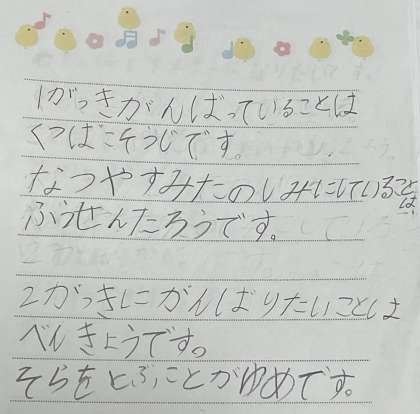 1がっきがんばっていることは
くつばこそうじです。
なつやすみたのしみにしていることは
ふうせんたろうです。
2がっきにがんばりたいことは
べんきょうです。
そらをとぶことがゆめです。